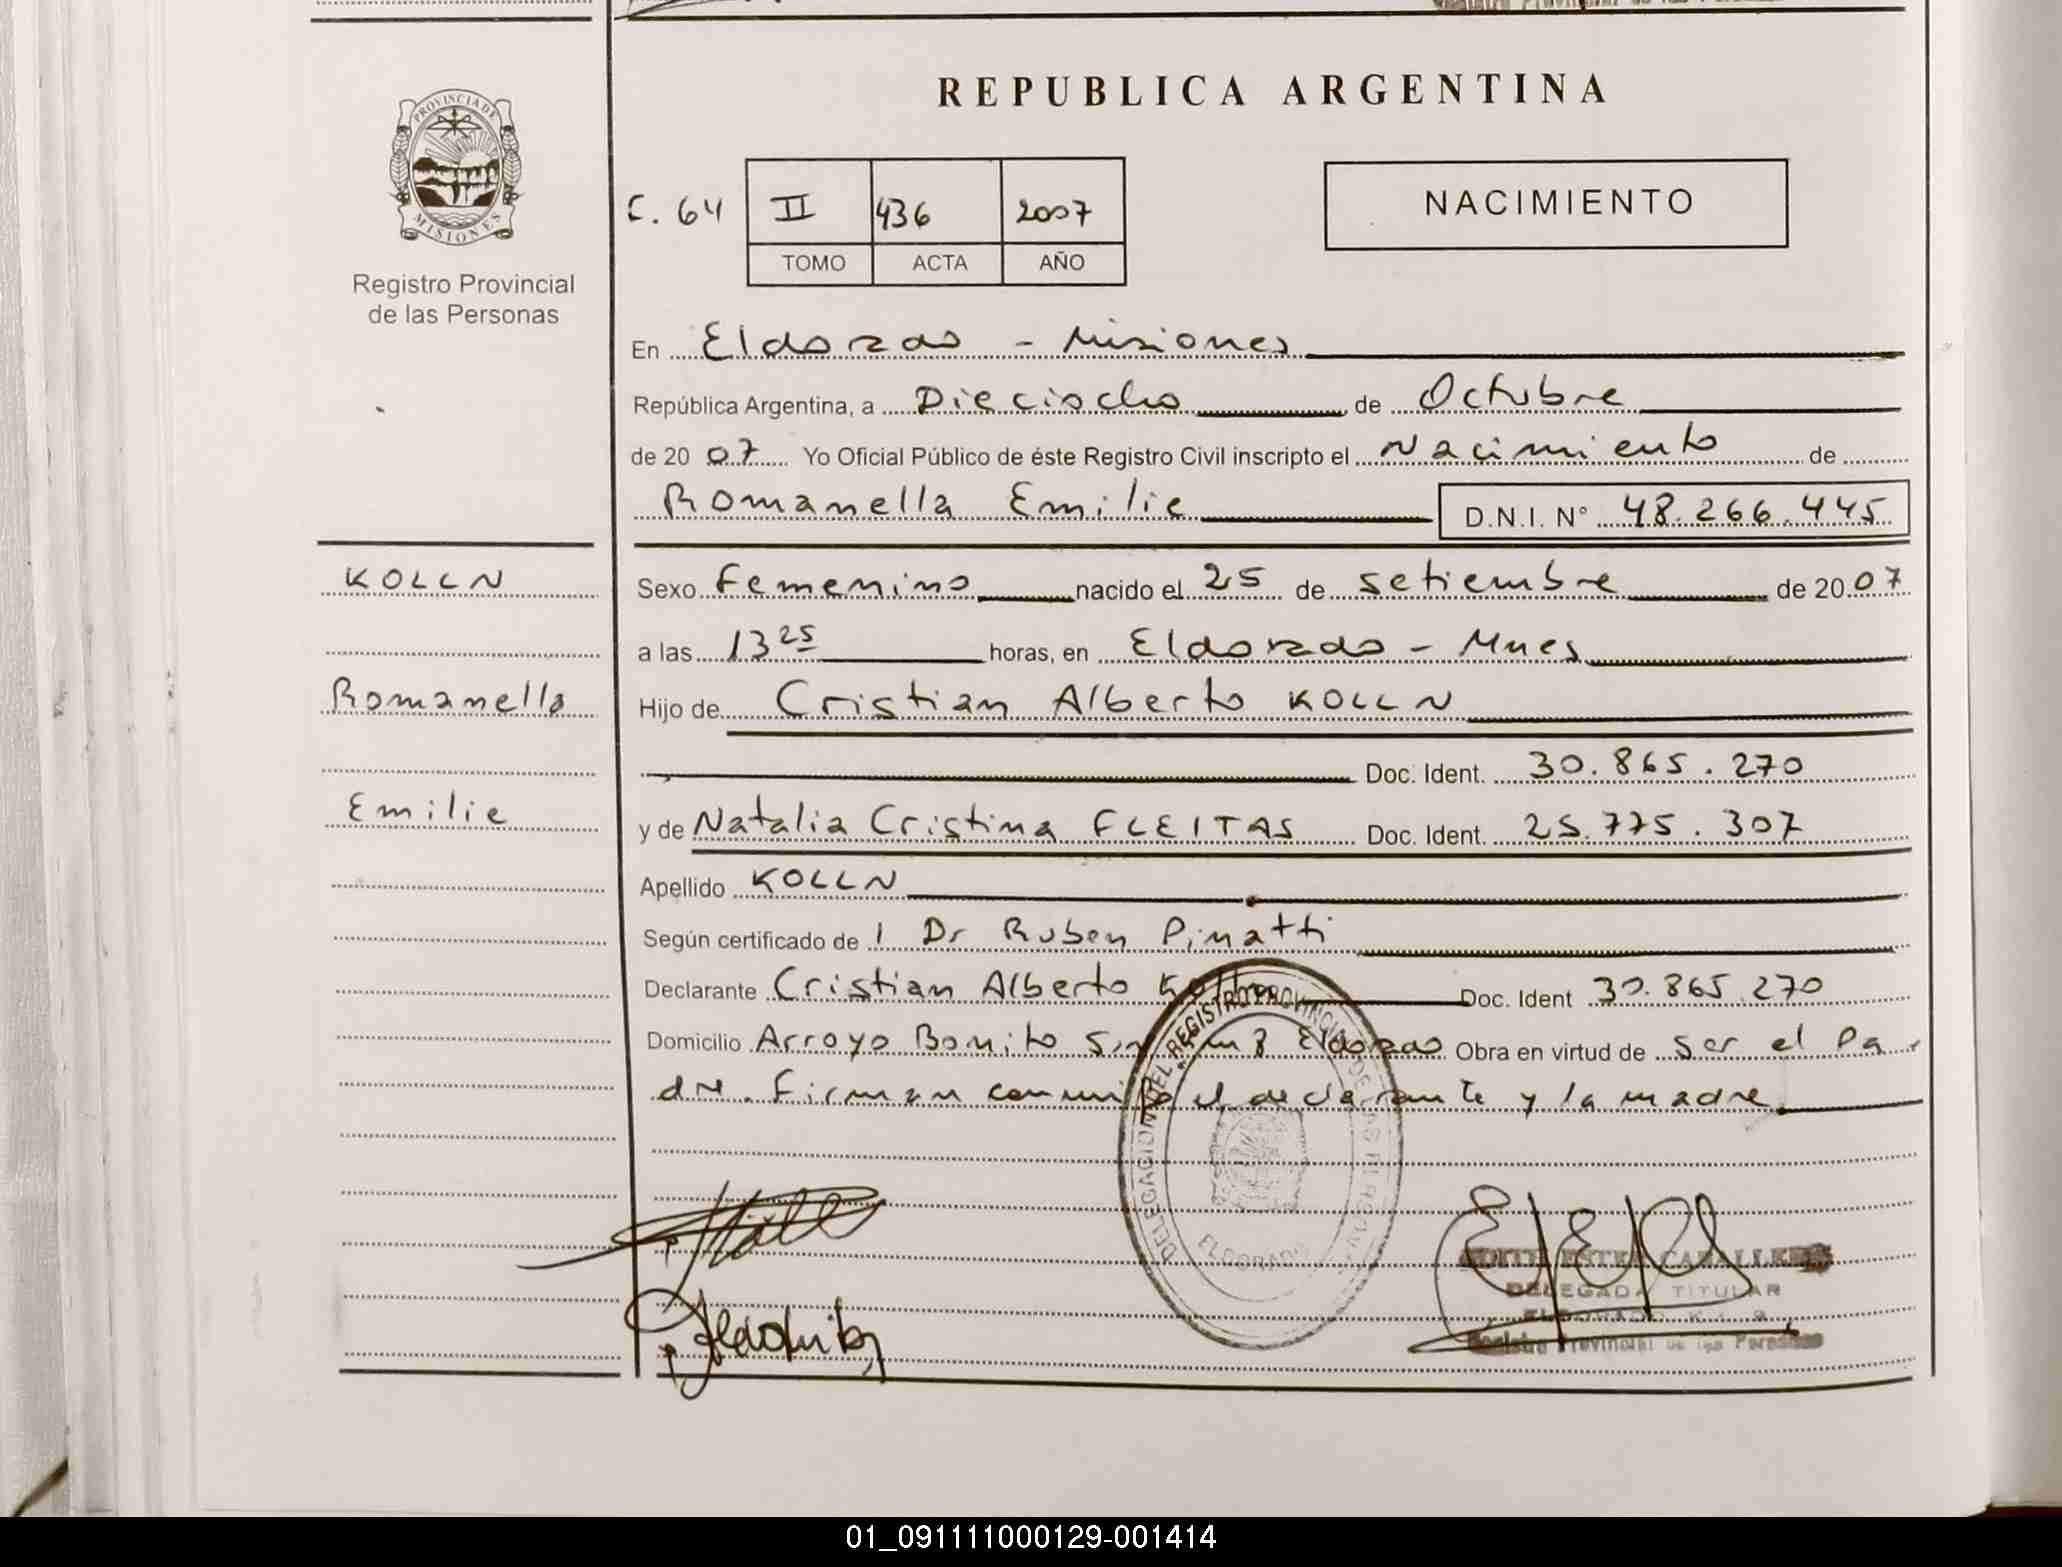 REPUBLICA ARGENTINA
PROVINCIA DE
MISIONES
Registro Provincial
de las Personas
C. 64 II 436 2007
TOMO ACTA AÑO
NACIMIENTO
En Eldorado - Misiones
República Argentina, a Dieciocho de Octubre
de 2007 Yo Oficial Público de éste Registro Civil inscripto el Nacimiento de
Romanella Emilie D.N.I. N° 48.266.445
KOLLN
Romanella
Emilie
Sexo Femenino nacido el 25 de setiembre de 2007
a las 13 25 horas, en Eldorado - Mnes
Hijo de Cristian Alberto KOLLN
Doc. Ident. 30.865.270
y de Natalia Cristina FLEITAS Doc. Ident. 25.775.307
Apellido KOLLN
Según certificado de l Dr Ruben Pinatti
Declarante Cristian Alberto Doc. Ident 30.865.270
Domicilio Arroyo Bonito S/n Km 8 Eldorado Obra en virtud de ser el Pa-
dre. Firman conmigo el declarante y la madre
DELEGACION DEL REGISTRO PROVINCIAL DE LAS PERSONAS
ELDORADO
EDITH ESTER CABALLERO
DELEGADA TITULAR
ELDORADO K
Registro Provincial de las Personas
01_091111000129-001414